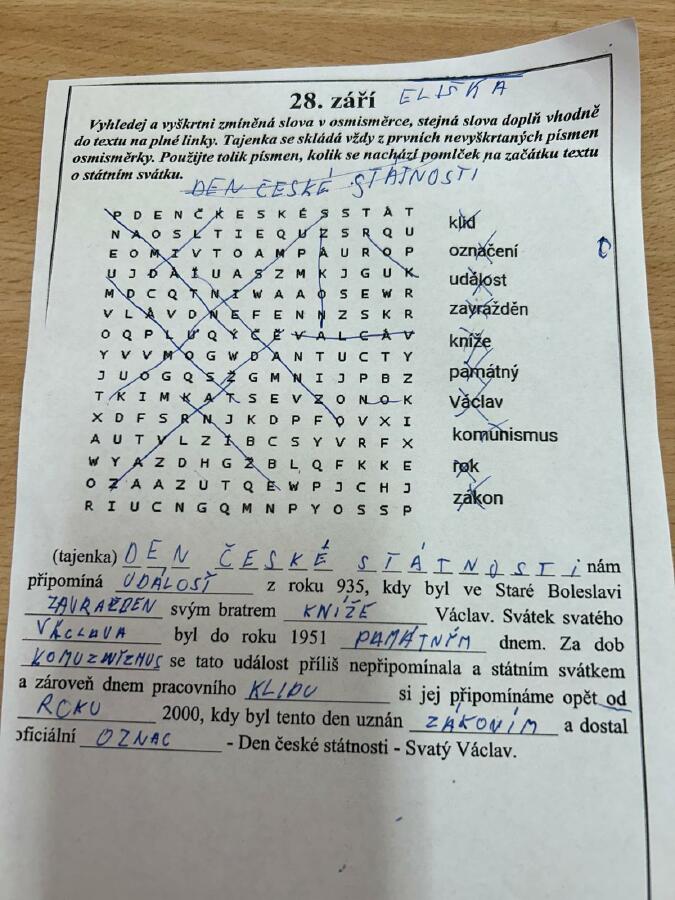 28. září ELIŠKA
Vyhledej a vyškrtni zmíněná slova v osmisměrce, stejná slova doplň vhodně
do textu na plné linky. Tajenka se skládá vždy z prvních nevyškrtaných písmen
osmisměrky. Použijte tolik písmen, kolik se nachází pomlček na začátku textu
o státním svátku.
DEN ČESKÉ STÁTNOSTI
P D E N Č K E S K É S S T Á T
N A O S L T I E Q U Z S R Q U
E O M I V T O A M P Á U R O P
U J D A Í U A S Z M K J G U K
M D C Q T N I W A A O S E W R
V L Á V D N E F E N N Z S K R
O Q P L U Q Ý Č Ě V A L C Á V
Y V V M O G W D A N T U C T Y
J U O G Q S Ž G M N I J P B Z
T K I M K A T S E V Z O N O K
X D F S R N J K D P F O V X I
A U T V L Z Í B C S Y V R F X
W Y A Z D H G Ž B L Q F K K E
O Z A A Z U T Q E W P J C H J
R I U C N G Q M N P Y O S S P
klid
označení
událost
zavražděn
kníže
památný
Václav
komunismus
rok
zákon
(tajenka) DEN ČESKÉ STÁTNOSTI nám
připomíná UDÁLOSŤ z roku 935, kdy byl ve Staré Boleslavi
ZAVRAŽDEN svým bratrem KNÍŽE Václav. Svátek svatého
VÁCLAVA byl do roku 1951 PAMÁTNÝM dnem. Za dob
KOMUZNIZMUS se tato událost příliš nepřipomínala a státním svátkem
a zároveň dnem pracovního KLIDU si jej připomínáme opět od
ROKU 2000, kdy byl tento den uznán ZÁKONÍM a dostal
oficiální OZNAC - Den české státnosti - Svatý Václav.